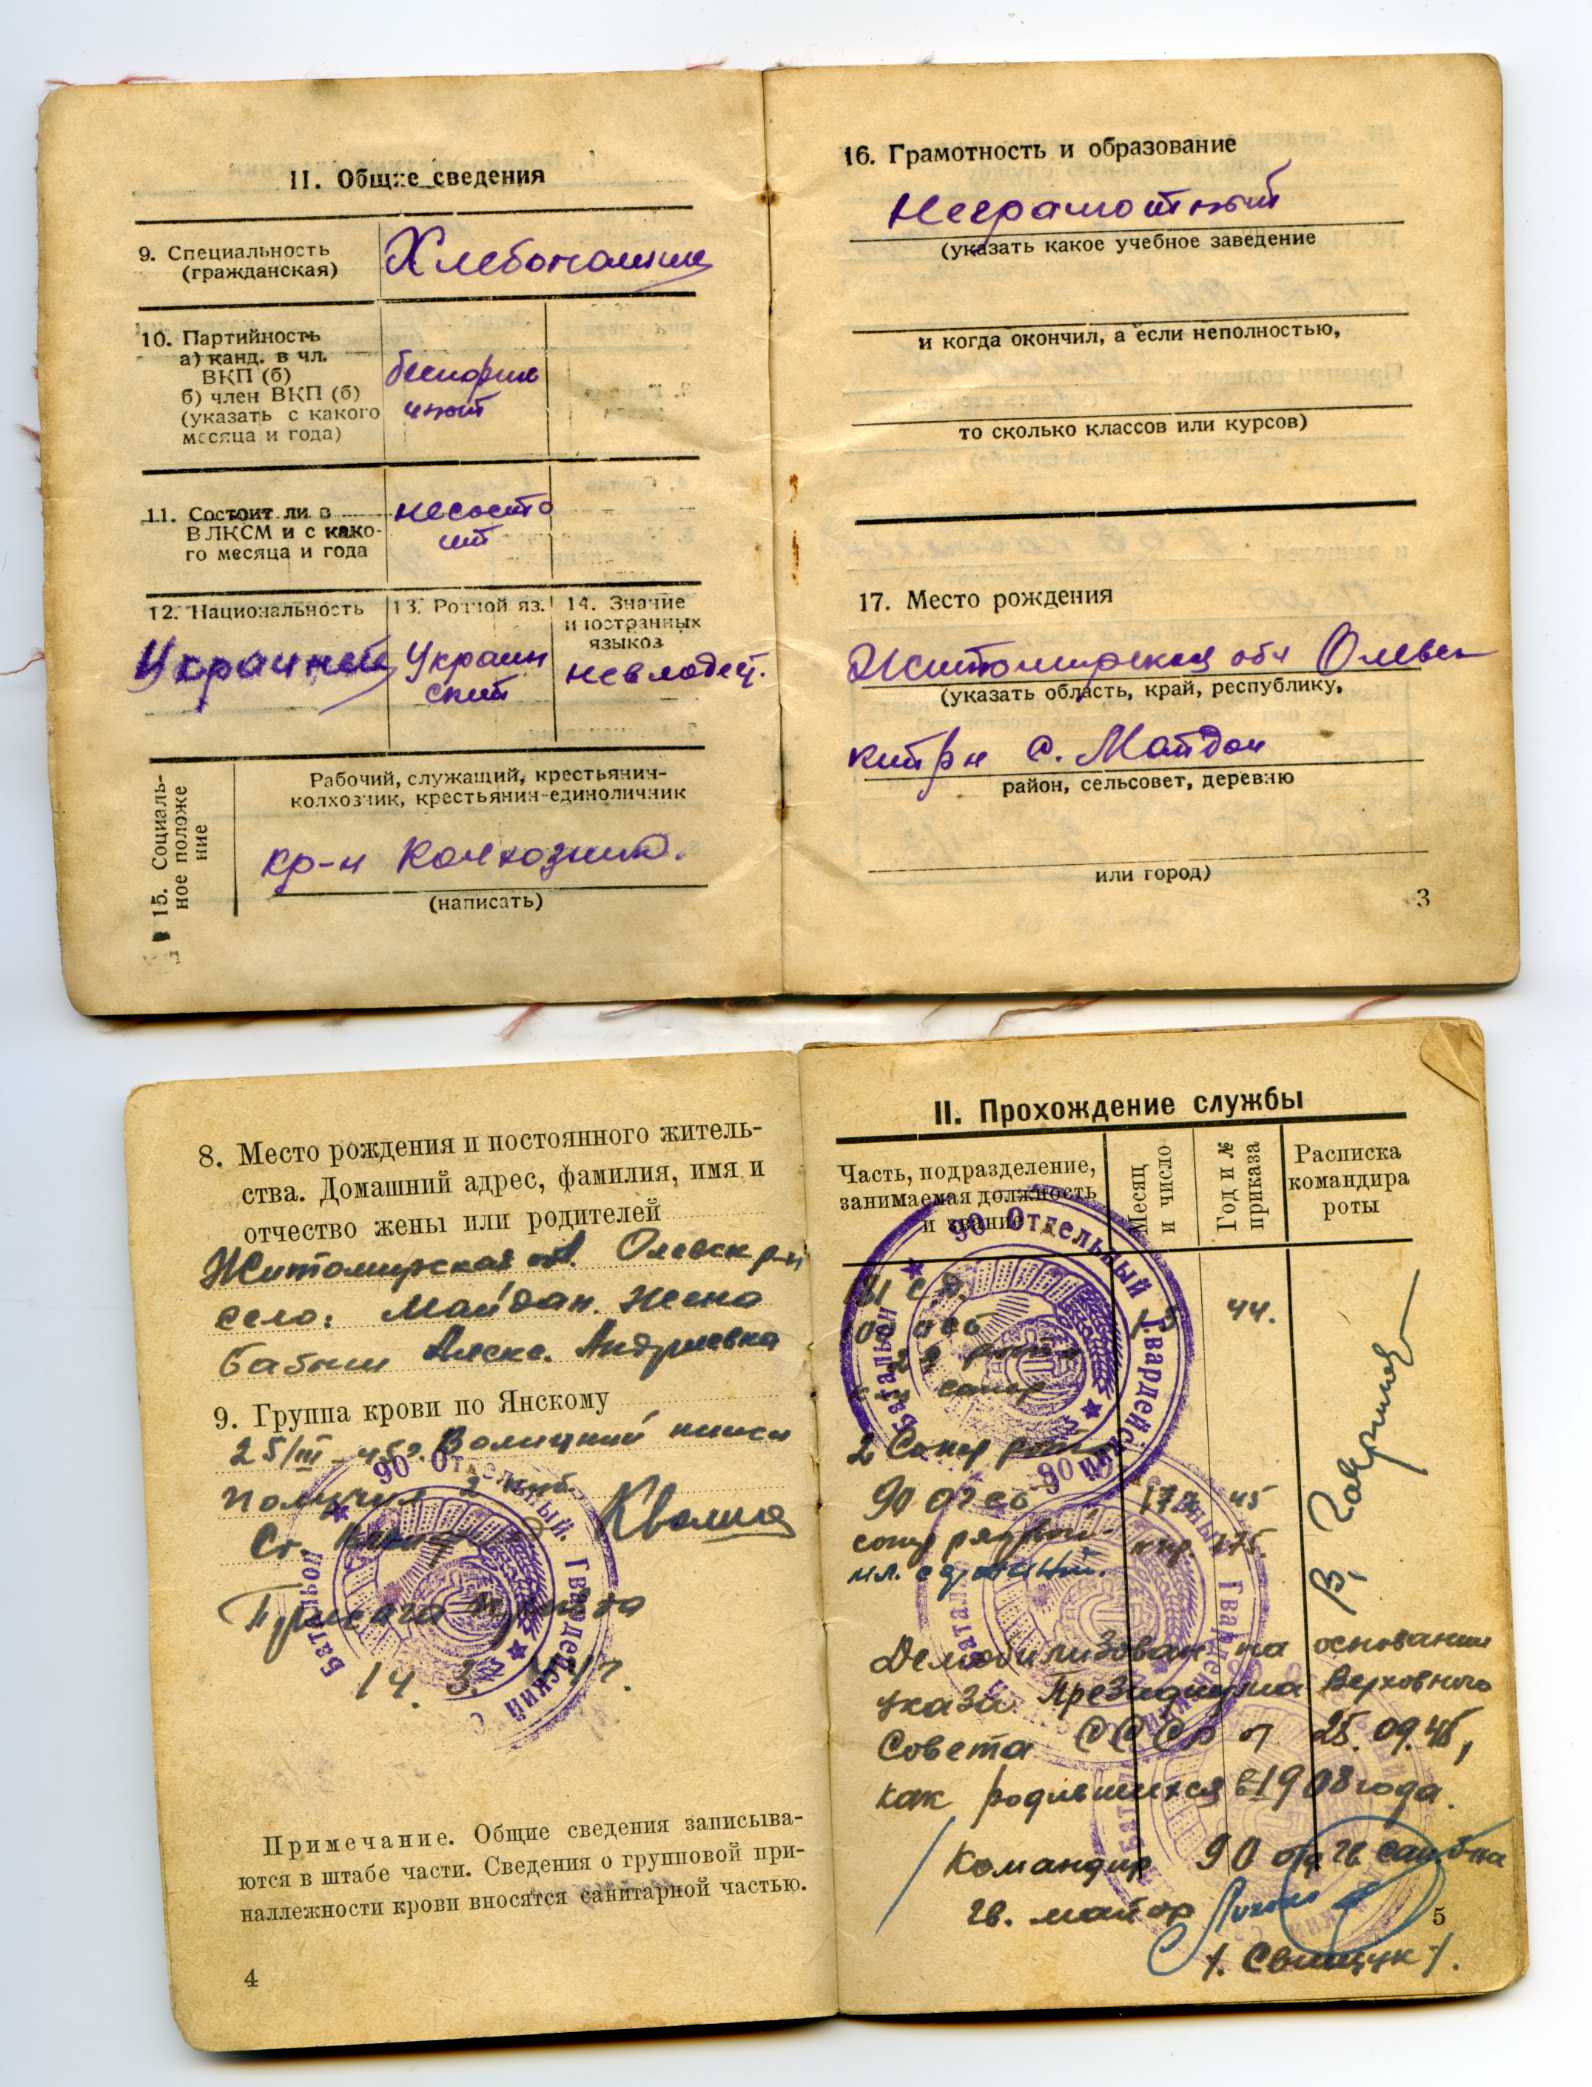 II. Общие сведения
9. Специальность
(гражданская)
10. Партийность
а) канд. в чл.
ВКП (б)
б) член ВКП (б)
(указать с какого
месяца и года)
11. Состоит ли в
ВЛКСМ и с како-
го месяца и года
несосто
ит
12. Национальность
13. Родной яз.
Украин
ский
14. Знание
иностранных
языков
невладеет.
15. Социаль-
ное положе
ние
Рабочий, служащий, крестьянин-
колхозник, крестьянин-единоличник
кр-н Колхозник.
(написать)
16. Грамотность и образование
Неграмотный
(указать какое учебное заведение
и когда окончил, а если неполностью,
то сколько классов или курсов)
17. Место рождения
Житомирская обл Олевс
(указать область, край, республику,
кий рн с. Майдан
район, сельсовет, деревню
или город)
3
8. Место рождения и постоянного житель-
ства. Домашний адрес, фамилия, имя и
отчество жены или родителей
Житомирская об. Олевск р-н
село: Майдан. Жена
Андреевна
9. Группа крови по Янскому
25/III-45г.
получил
Присяга принята
14. 3.
90 Отдельный Гвардейский
Батальон
Примечание. Общие сведения записыва-
ются в штабе части. Сведения о групповой при-
надлежности крови вносятся санитарной частью.
4
II. Прохождение службы
Часть, подразделение,
занимаемая должность
и звание
Месяц
и число
Год и №
приказа
Расписка
командира
роты
90 Отдельный Гвардейский
Батальон
44.
2 Сапер рота
45
сапер рядовой
пр. 175.
мл. сержант.
Демобилизован на основании
указа Президиума Верховного
Совета СССР от 25.09.45,
как родившихся в 1908 года.
Командир 90 отд гв сап б-на
гв. майор
/. Свищук /.
5